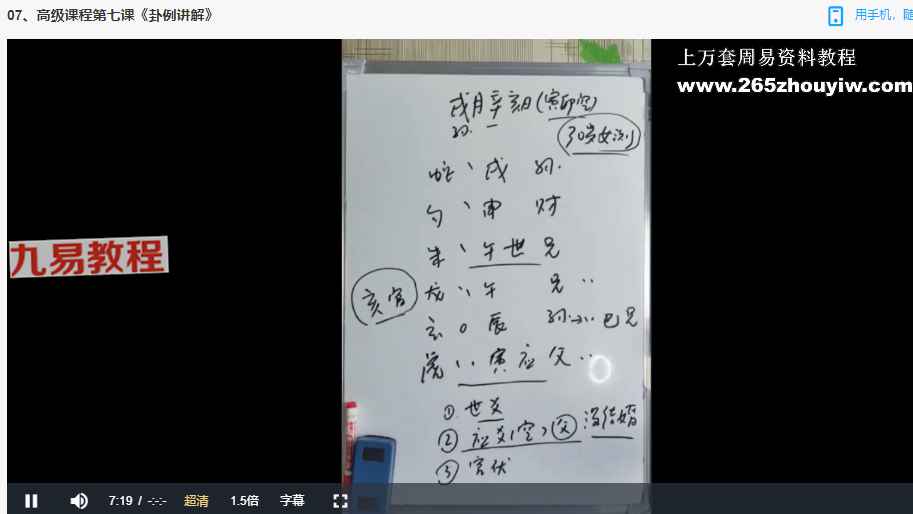 07、高级课程第七课《卦例讲解》
用手机，随
上万套周易资料教程
www.265zhouyiw.com
九易教程
戌月辛亥日(寅卯空)
30岁女测
蛇、戌
勾、申 财
朱、午世兄
龙、、午 兄
玄 0 辰 巳兄
虎、、寅应父
亥官
① 世爻
② 应爻(空)(父) 没结婚
③ 官伏
7:19 / -:-:-
超清
1.5倍
字幕